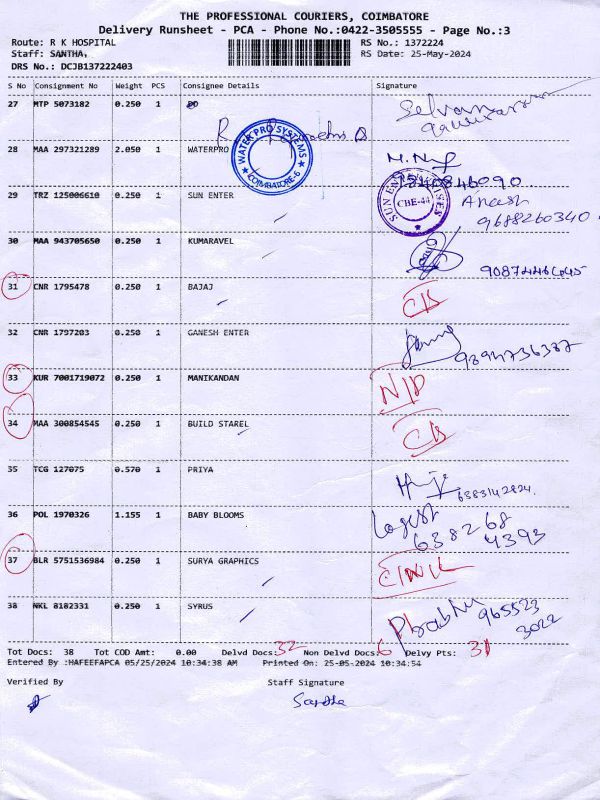 THE PROFESSIONAL COURIERS, COIMBATORE
Delivery Runsheet - PCA - Phone No.:0422-3505555 - Page No.:3
Route: R K HOSPITAL RS No.: 1372224
Staff: SANTHA, RS Date: 25-May-2024
DRS No.: DCJB137222403
S No Consignment No Weight PCS Consignee Details Signature
27 MTP 5073182 0.250 1
Selvan
28 MAA 297321289 2.050 1 WATERPRO
WATER PRO SYSTEMS
COIMBATORE-6
9540846090
29 TRZ 125006610 0.250 1 SUN ENTER
SUN ENTERPRISES
CBE-44
9688260340
30 MAA 943705650 0.250 1 KUMARAVEL
31 CNR 1795478 0.250 1 BAJAJ
32 CNR 1797203 0.250 1 GANESH ENTER
9894736387
33 KUR 7001719072 0.250 1 MANIKANDAN
N/D
34 MAA 300854545 0.250 1 BUILD STAREL
35 TCG 127075 0.570 1 PRIYA
6383142824.
36 POL 1970326 1.155 1 BABY BLOOMS
638268
4393
37 BLR 5751536984 0.250 1 SURYA GRAPHICS
38 NKL 8182331 0.250 1 SYRUS
Prabhu 965523
3022
Tot Docs: 38 Tot COD Amt: 0.00 Delvd Docs: 32 Non Delvd Docs: 6 Delvy Pts: 31
Entered By :HAFEEFAPCA 05/25/2024 10:34:38 AM Printed On: 25-05-2024 10:34:54
Verified By Staff Signature
Santha